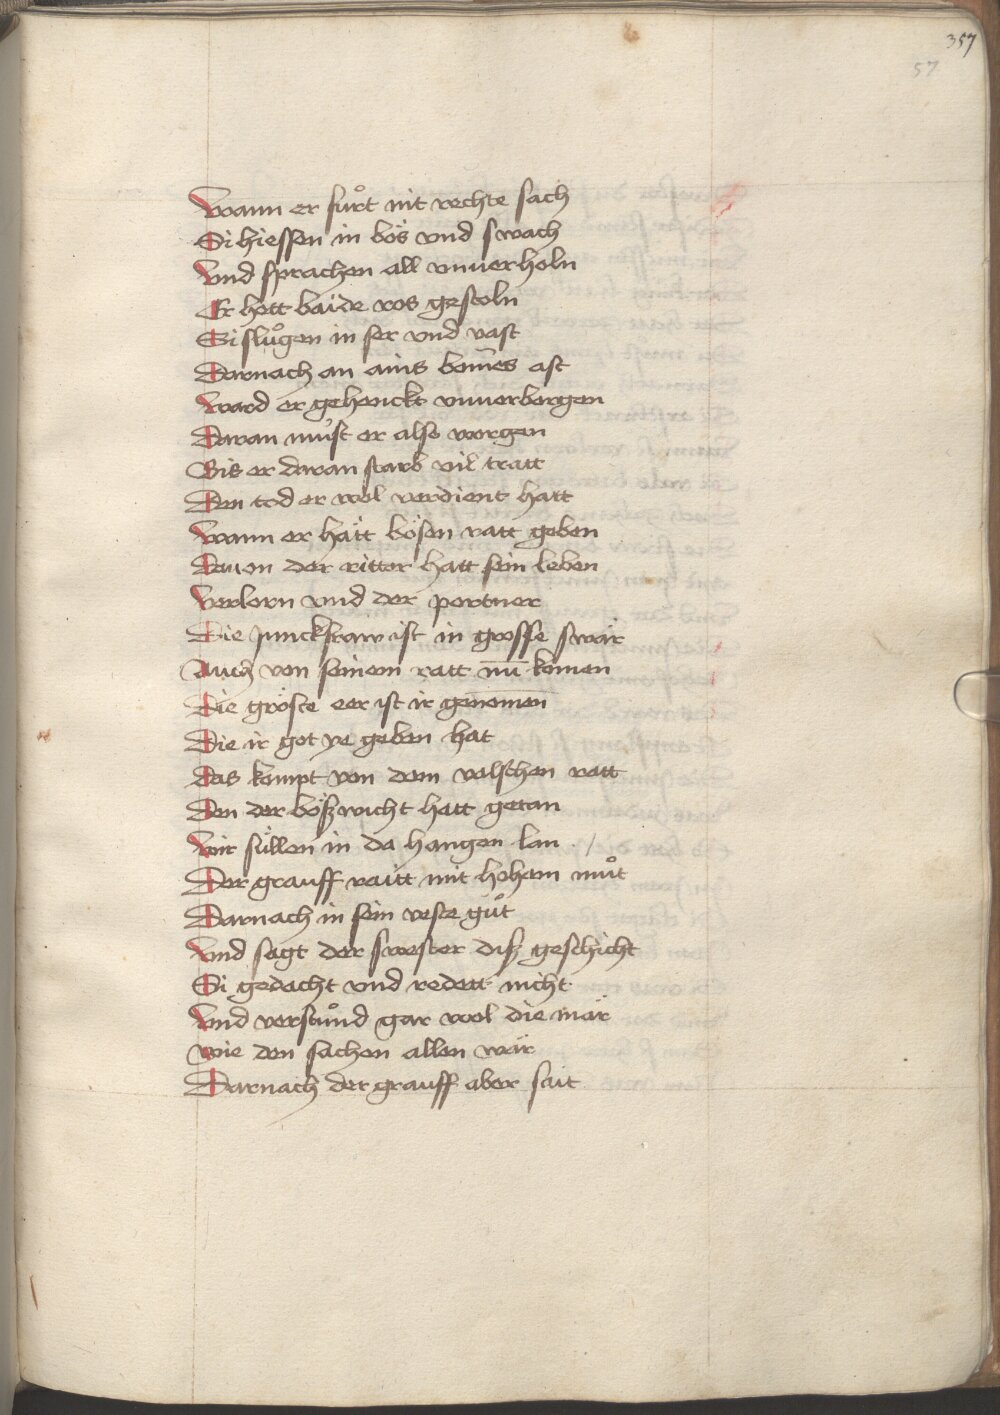 357
57
Wann er fuͦrt nit rechte sach
Si hiessen in bös vnd swach
Vnd sprachen all vnuerholn
Er hett baide ros gestoln
Si sluͦgen in ser vnd vast
Darnach an ains bom̄es ast
Ward er gehenckt vnuerborgen
Daran muͦst er also worgen
Bis er daran starb vil tratt
Den tod er wol verdient hatt
Wann er hätt bösen ratt geben
Dauon der ritter hatt sein leben
Verlorn vnd der portner
Die junckfraw ist in grosse swär
Auch von seinem ratt nū komen
Die gröste eer ist ir genomen
Die ir got ye geben hat
Das kompt von dem valschen ratt
Den der bößwicht hatt getan
Wir süllen in da hangen lan /
Der grauff raitt mit hohem muͦt
Darnach in sein veste guͦt
Vnd sagt der swester diß geschicht
Si gedacht vnd redett nicht
Vnd verstuͦnd gar wol die mär
Wie den sachen allen wär
Darnach der grauff aber sait